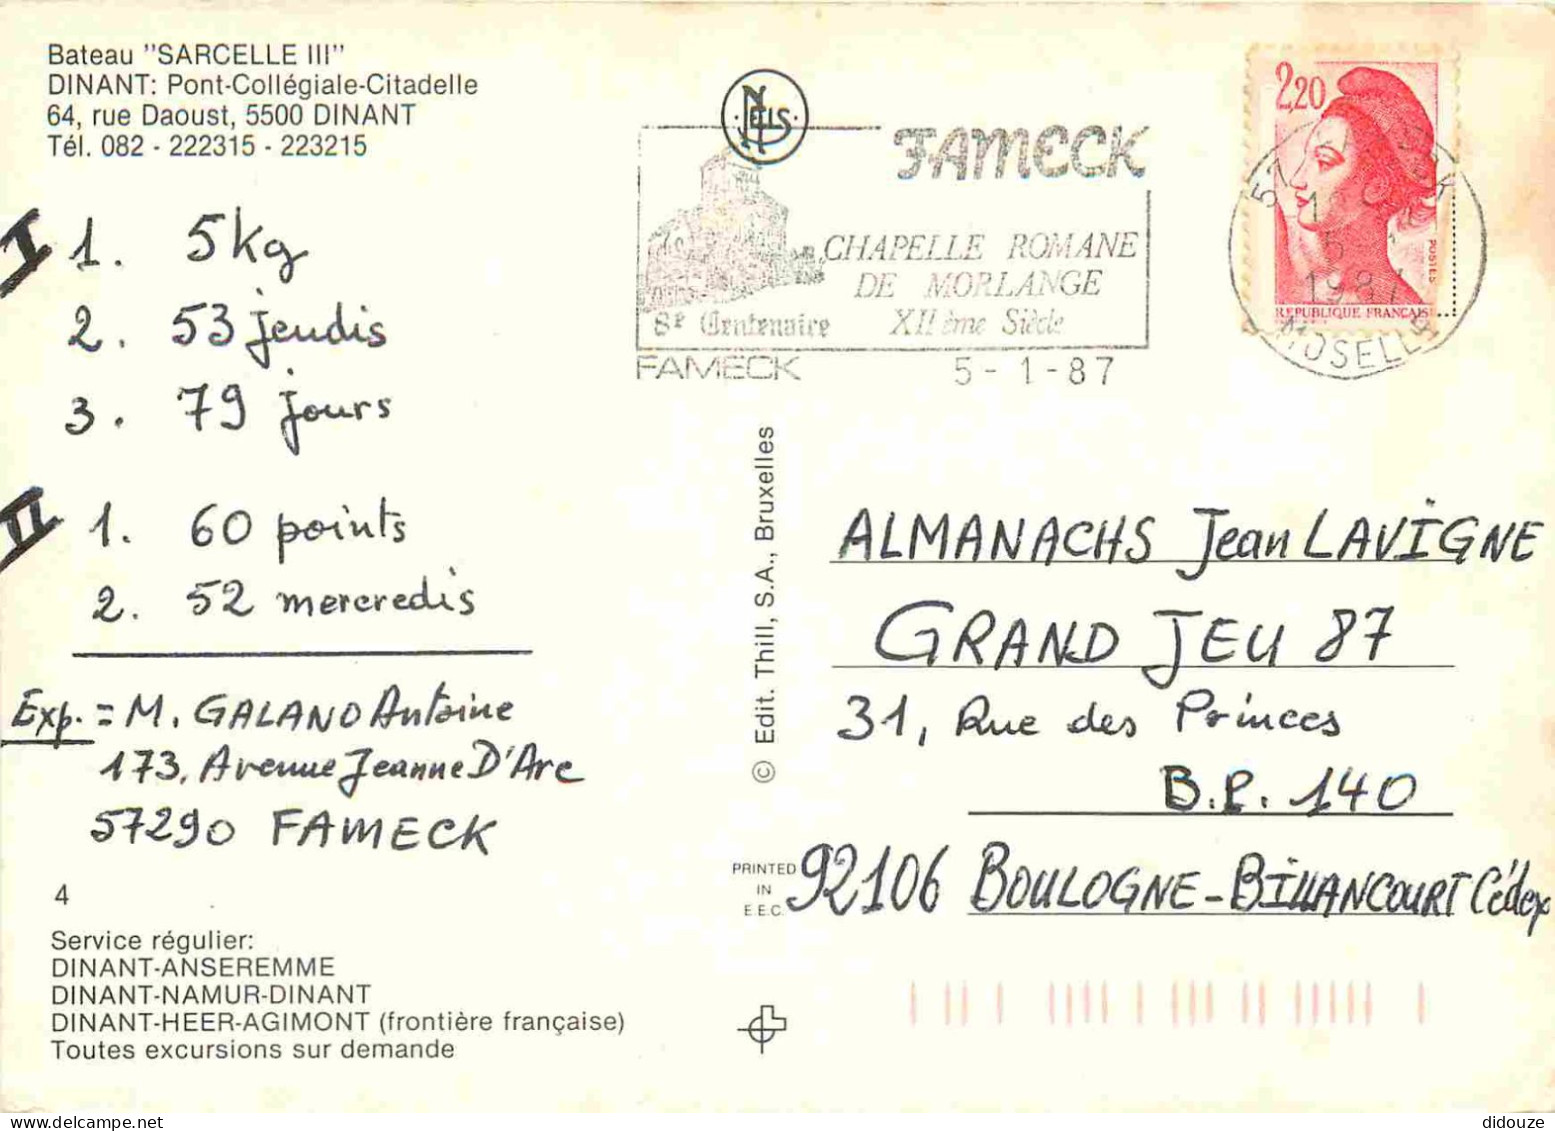 Bateau "SARCELLE III"
DINANT: Pont-Collégiale-Citadelle
64, rue Daoust, 5500 DINANT
Tél. 082 - 222315 - 223215
I 1. 5kg
2. 53 jeudis
3. 79 jours
II 1. 60 points
2. 52 mercredis
Exp. = M. GALANO Antoine
173, Avenue Jeanne D'Arc
57290 FAMECK
4
Service régulier:
DINANT-ANSEREMME
DINANT-NAMUR-DINANT
DINANT-HEER-AGIMONT (frontière française)
Toutes excursions sur demande
NELS
FAMECK
CHAPELLE ROMANE
DE MORLANGE
8e Centenaire XIIème Siècle
FAMECK 5-1-87
2,20
POSTES
REPUBLIQUE FRANÇAISE
57
5
1987
MOSELLE
© Edit. Thill, S.A., Bruxelles
ALMANACHS Jean LAVIGNE
GRAND JEU 87
31, Rue des Princes
B.P. 140
92106 BOULOGNE-BILLANCOURT Cédex
PRINTED
IN
E.E.C.
didouze